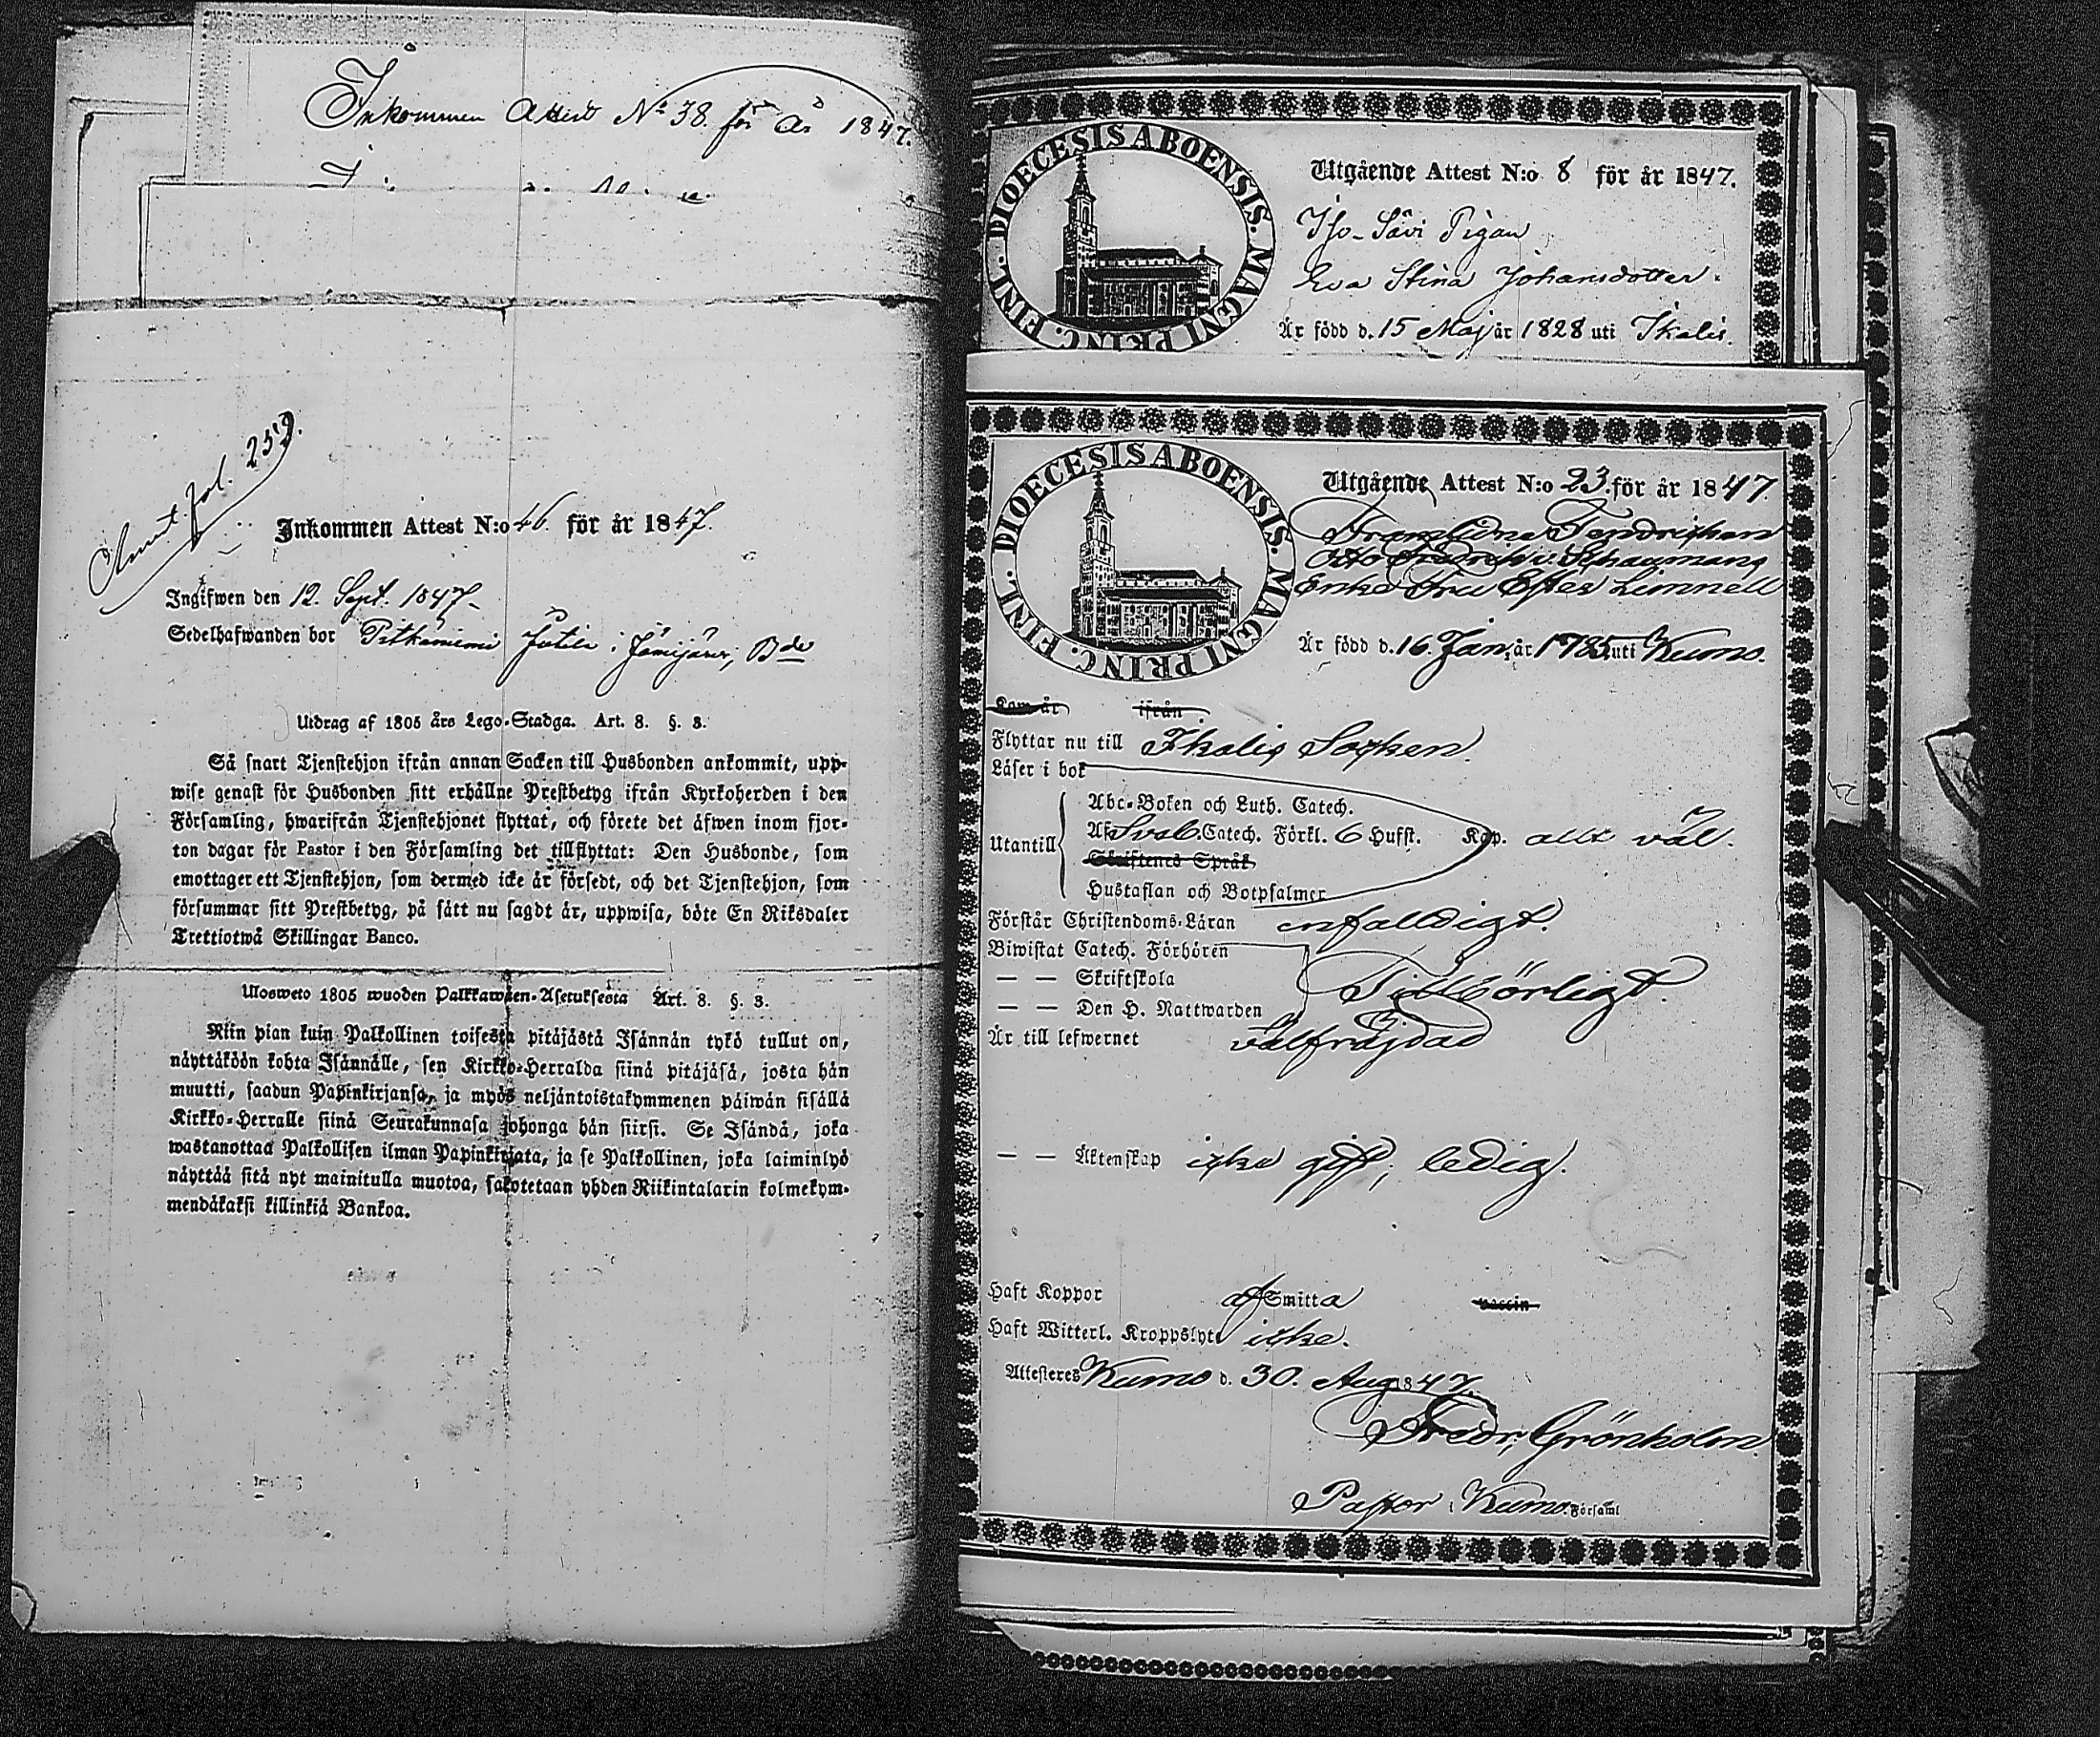 Inkommen Attest No 38. för år 1847.
Amt. fol. 259.
Inkommen Attest N:o 46. för år 1847.
Ingifwen den 12. Sept. 1847.
Sedelhafwanden bor Pitkäniemi Jutila i Jämijärvi, Bde
Utdrag af 1805 års Lego-Stadga. Art. 8. §. 3.
Så snart Tjenstehjon ifrån annan Socken till Husbonden ankommit, upp-
wise genast för Husbonden sitt erhållne Prestbetyg ifrån Kyrkoherden i den
Församling, hwarifrån Tjenstehjonet flyttat, och förete det äfwen inom fjor-
ton dagar för Pastor i den Församling det tillflyttat: Den Husbonde, som
emottager ett Tjenstehjon, som dermed icke är försedt, och det Tjenstehjon, som
försummar sitt Prestbetyg, på sätt nu sagdt är, uppwisa, böte En Riksdaler
Trettiotwå Skillingar Banco.
Ulosweto 1805 wuoden Palkkawäen-Asetuksesta Art. 8. §. 3.
Niin pian kuin Palkollinen toisesta pitäjästä Isännän tykö tullut on,
näyttäköön kohta Isännälle, sen Kirkko-Herralda siinä pitäjäsä, josta hän
muutti, saadun Papinkirjansa, ja myös neljäntoistakymmenen päiwän sisällä
Kirkko-Herralle siinä Seurakunnasa johonga hän siirsi. Se Isändä, joka
wastanottaa Palkollisen ilman Papinkirjata, ja se Palkollinen, joka laiminlyö
näyttää sitä nyt mainitulla muotoa, sakotetaan yhden Riikintalarin kolmekym-
mendäkaksi killinkiä Bankoa.
DIOECESIS ABOENSIS. MAGNI PRINC. FINL.
Utgående Attest N:o 8 för år 1847.
Iso-Sävi Pigan
Eva Stina Johansdotter.
Är född d. 15 Maj år 1828 uti Ikalis.
DIOECESIS ABOENSIS. MAGNI PRINC. FINL.
Utgående Attest N:o 23. för år 1847.
Framlidne Fendrichen
Otto Fredrik v. Schaumans
Enka Fru Ester Limnell
Är född d. 16. Jan. år 1785 uti Kumo.
Kom år ifrån
Flyttar nu till Ikalis Socken.
Läser i bok
Abc-Boken och Luth. Catech.
Utantill Af Sveb. Catech. Förkl. 6 Hufst. Kap. allt väl.
Skriftenes Språk
Hustaflan och Botpsalmer
Förstår Christendoms-Läran enfaldigt.
Biwistat Catech. Förhören
— — Skriftskola Tillbörligt.
— — Den H. Nattwarden
Är till lefwernet välfräjdad
— — Äktenskap icke gift; ledig.
Haft Koppor af Smitta vaccin
Haft Witterl. Kroppslyte icke.
Attesteres Kumo d. 30. Aug 1847.
Fredr. Grönholm
Pastor i Kumo Församl